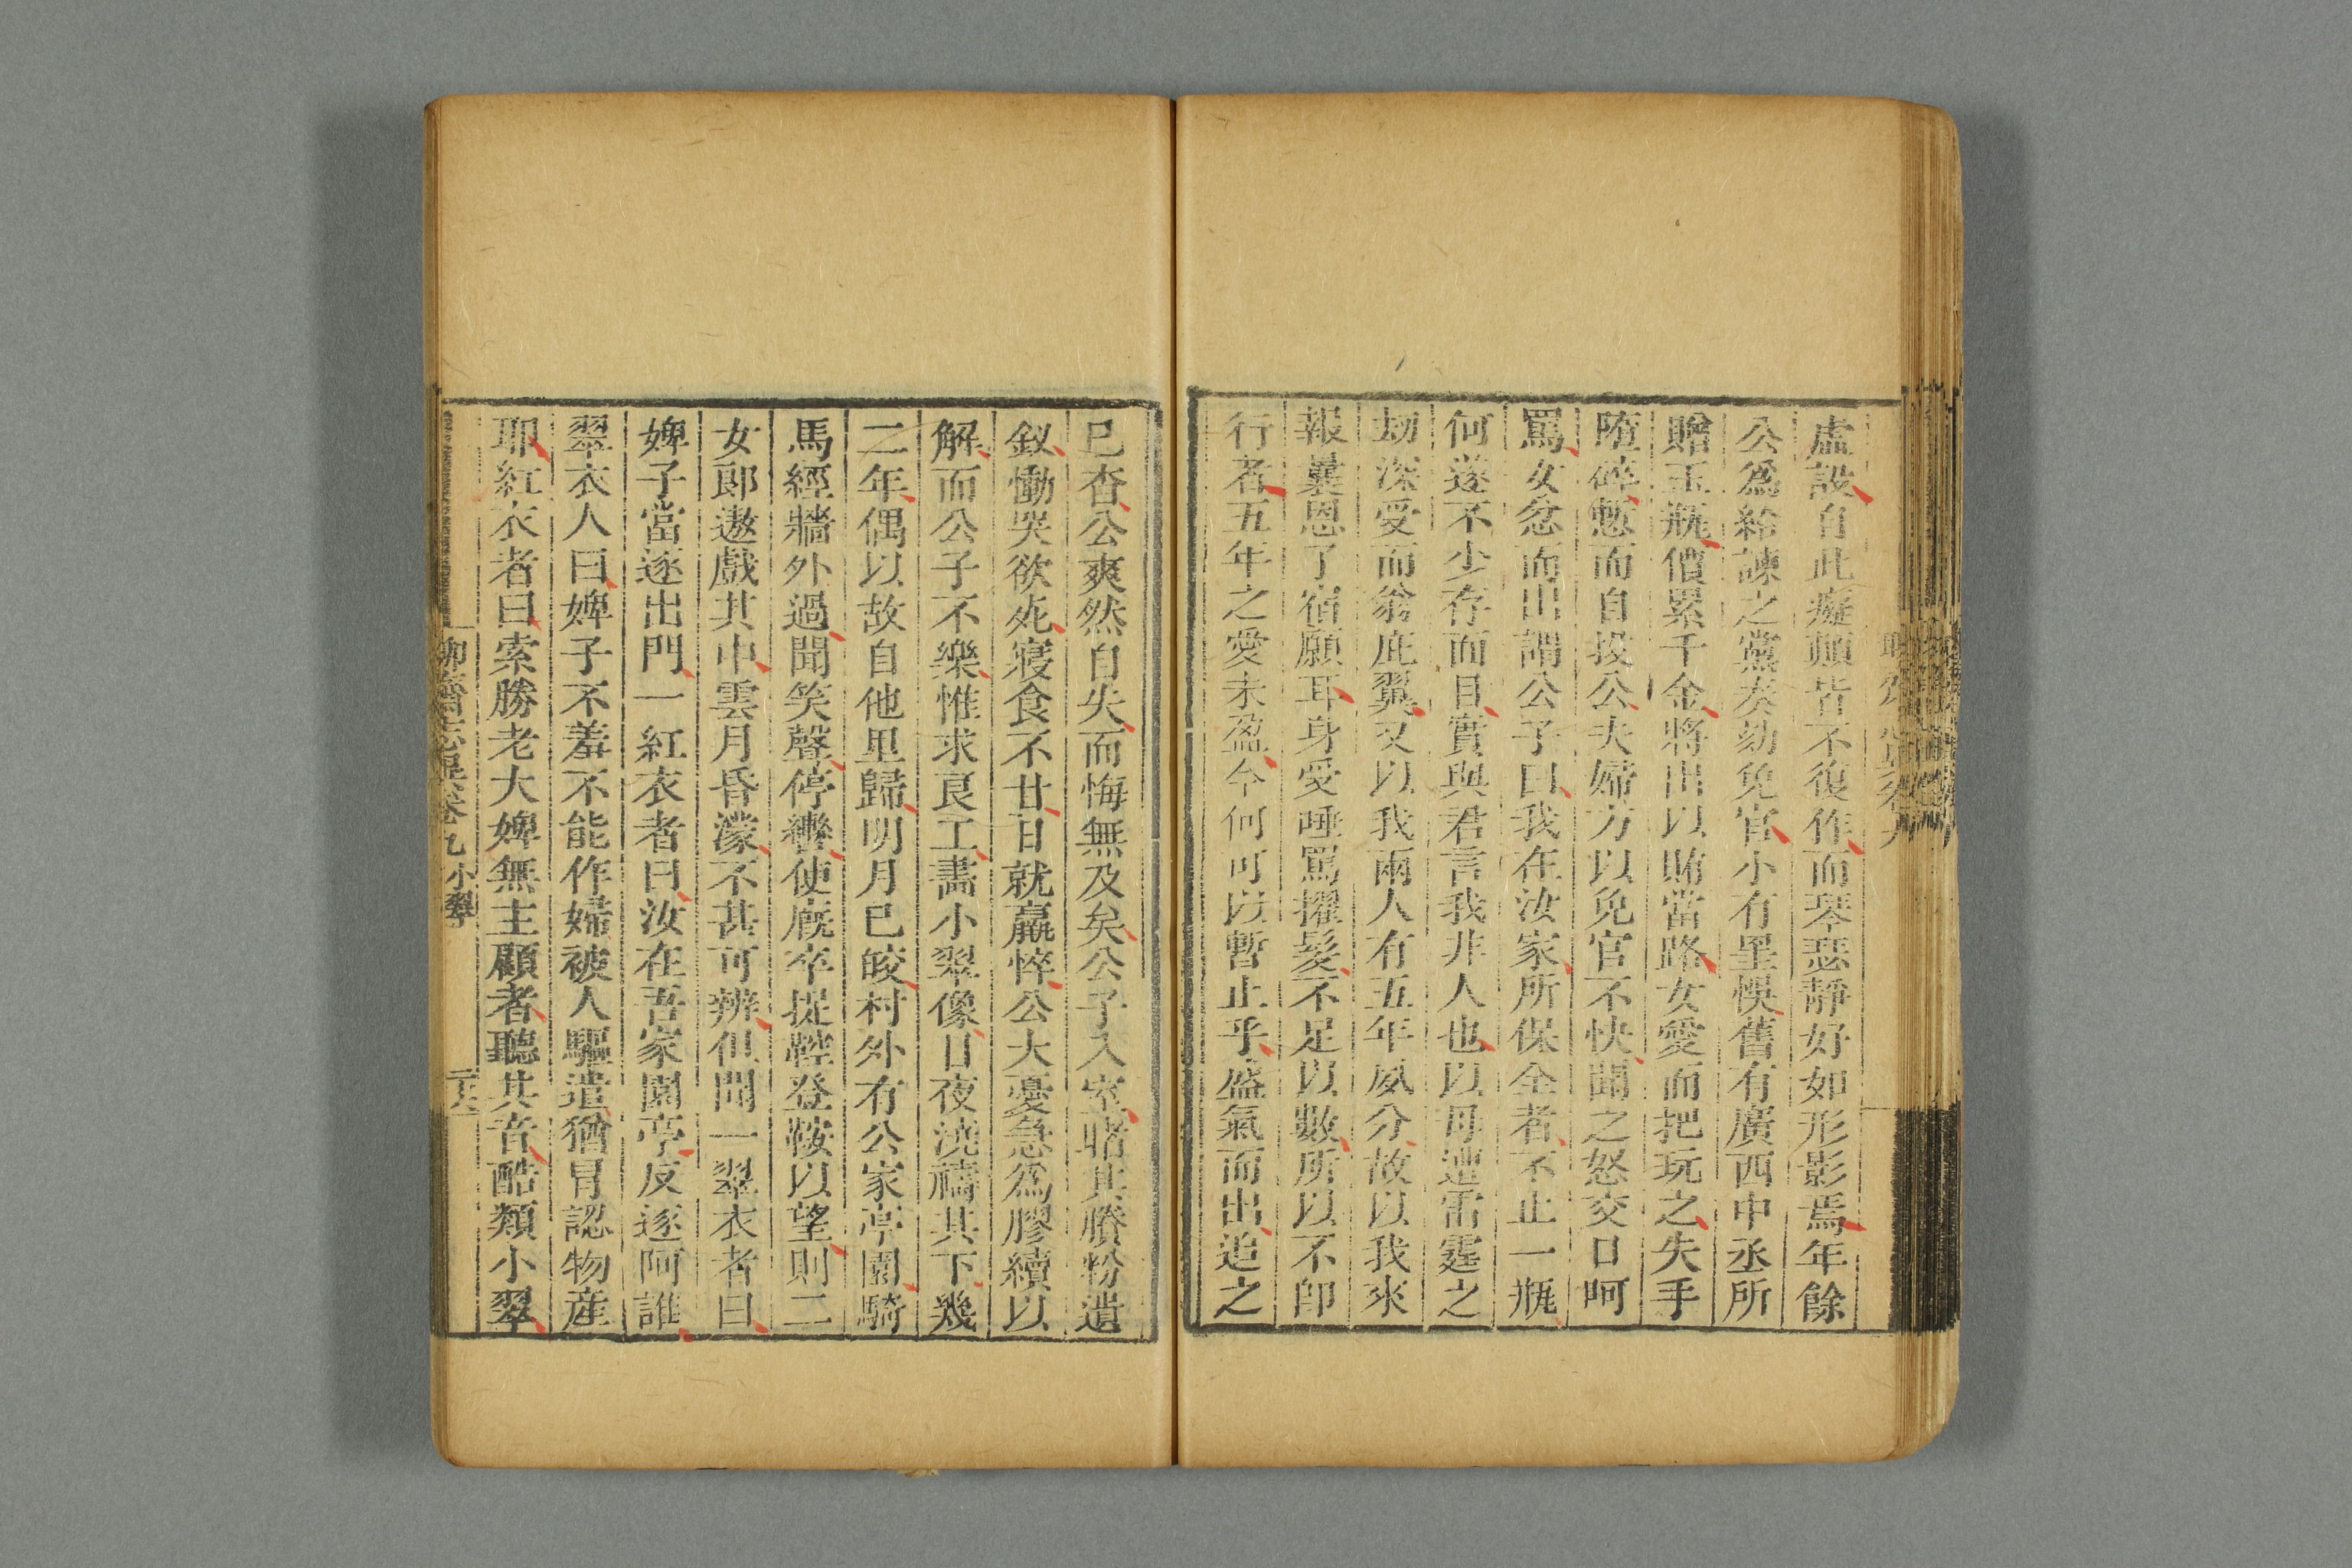 虛設自此癡顛皆不復作而琴瑟靜好如形影焉年餘
公爲給諫之黨奏劾免官小有罣悞舊有廣西中丞所
贈玉瓶價累千金將出以賄當路女愛而把玩之失手
墮碎慙而自投公夫婦方以免官不快聞之怒交口呵
罵女忿而出謂公子曰我在汝家所保全者不止一瓶
何遂不少存面目實與君言我非人也以母遭雷霆之
劫深受而翁庇翼又以我兩人有五年夙分故以我來
報曩恩了宿願耳身受唾罵擢髮不足以數所以不卽
行者五年之愛未盈今何可以暫止乎盛氣而出追之
已杳公爽然自失而悔無及矣公子入室睹其賸粉遺
釵慟哭欲死寢食不甘日就羸悴公大憂急爲膠續以
解而公子不樂惟求良工畵小翠像日夜澆禱其下幾
二年偶以故自他里歸明月已皎村外有公家亭園騎
馬經牆外過聞笑聲停轡使廐卒捉鞚登鞍以望則二
女郎遨戲其中雲月昏濛不甚可辨但聞一翠衣者曰
婢子當逐出門一紅衣者曰汝在吾家園亭反逐阿誰
翠衣人曰婢子不羞不能作婦被人驅遣猶冒認物産
耶紅衣者曰索勝老大婢無主顧者聽其音酷類小翠
聊齋志異卷九 小翠